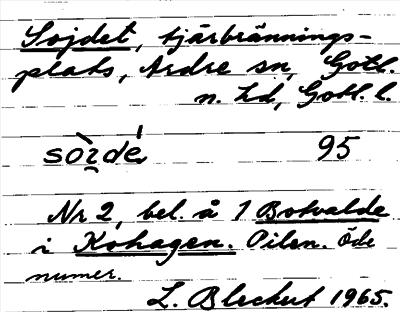 Sojdet, tjärbrännings-
plats, Ardre sn, Gotl.
n. hd, Gotl. l.
95
Nr 2, bel. å 1 Botvalde
i Kohagen. Oilen. Öde
numer.
L. Bleckert 1965.